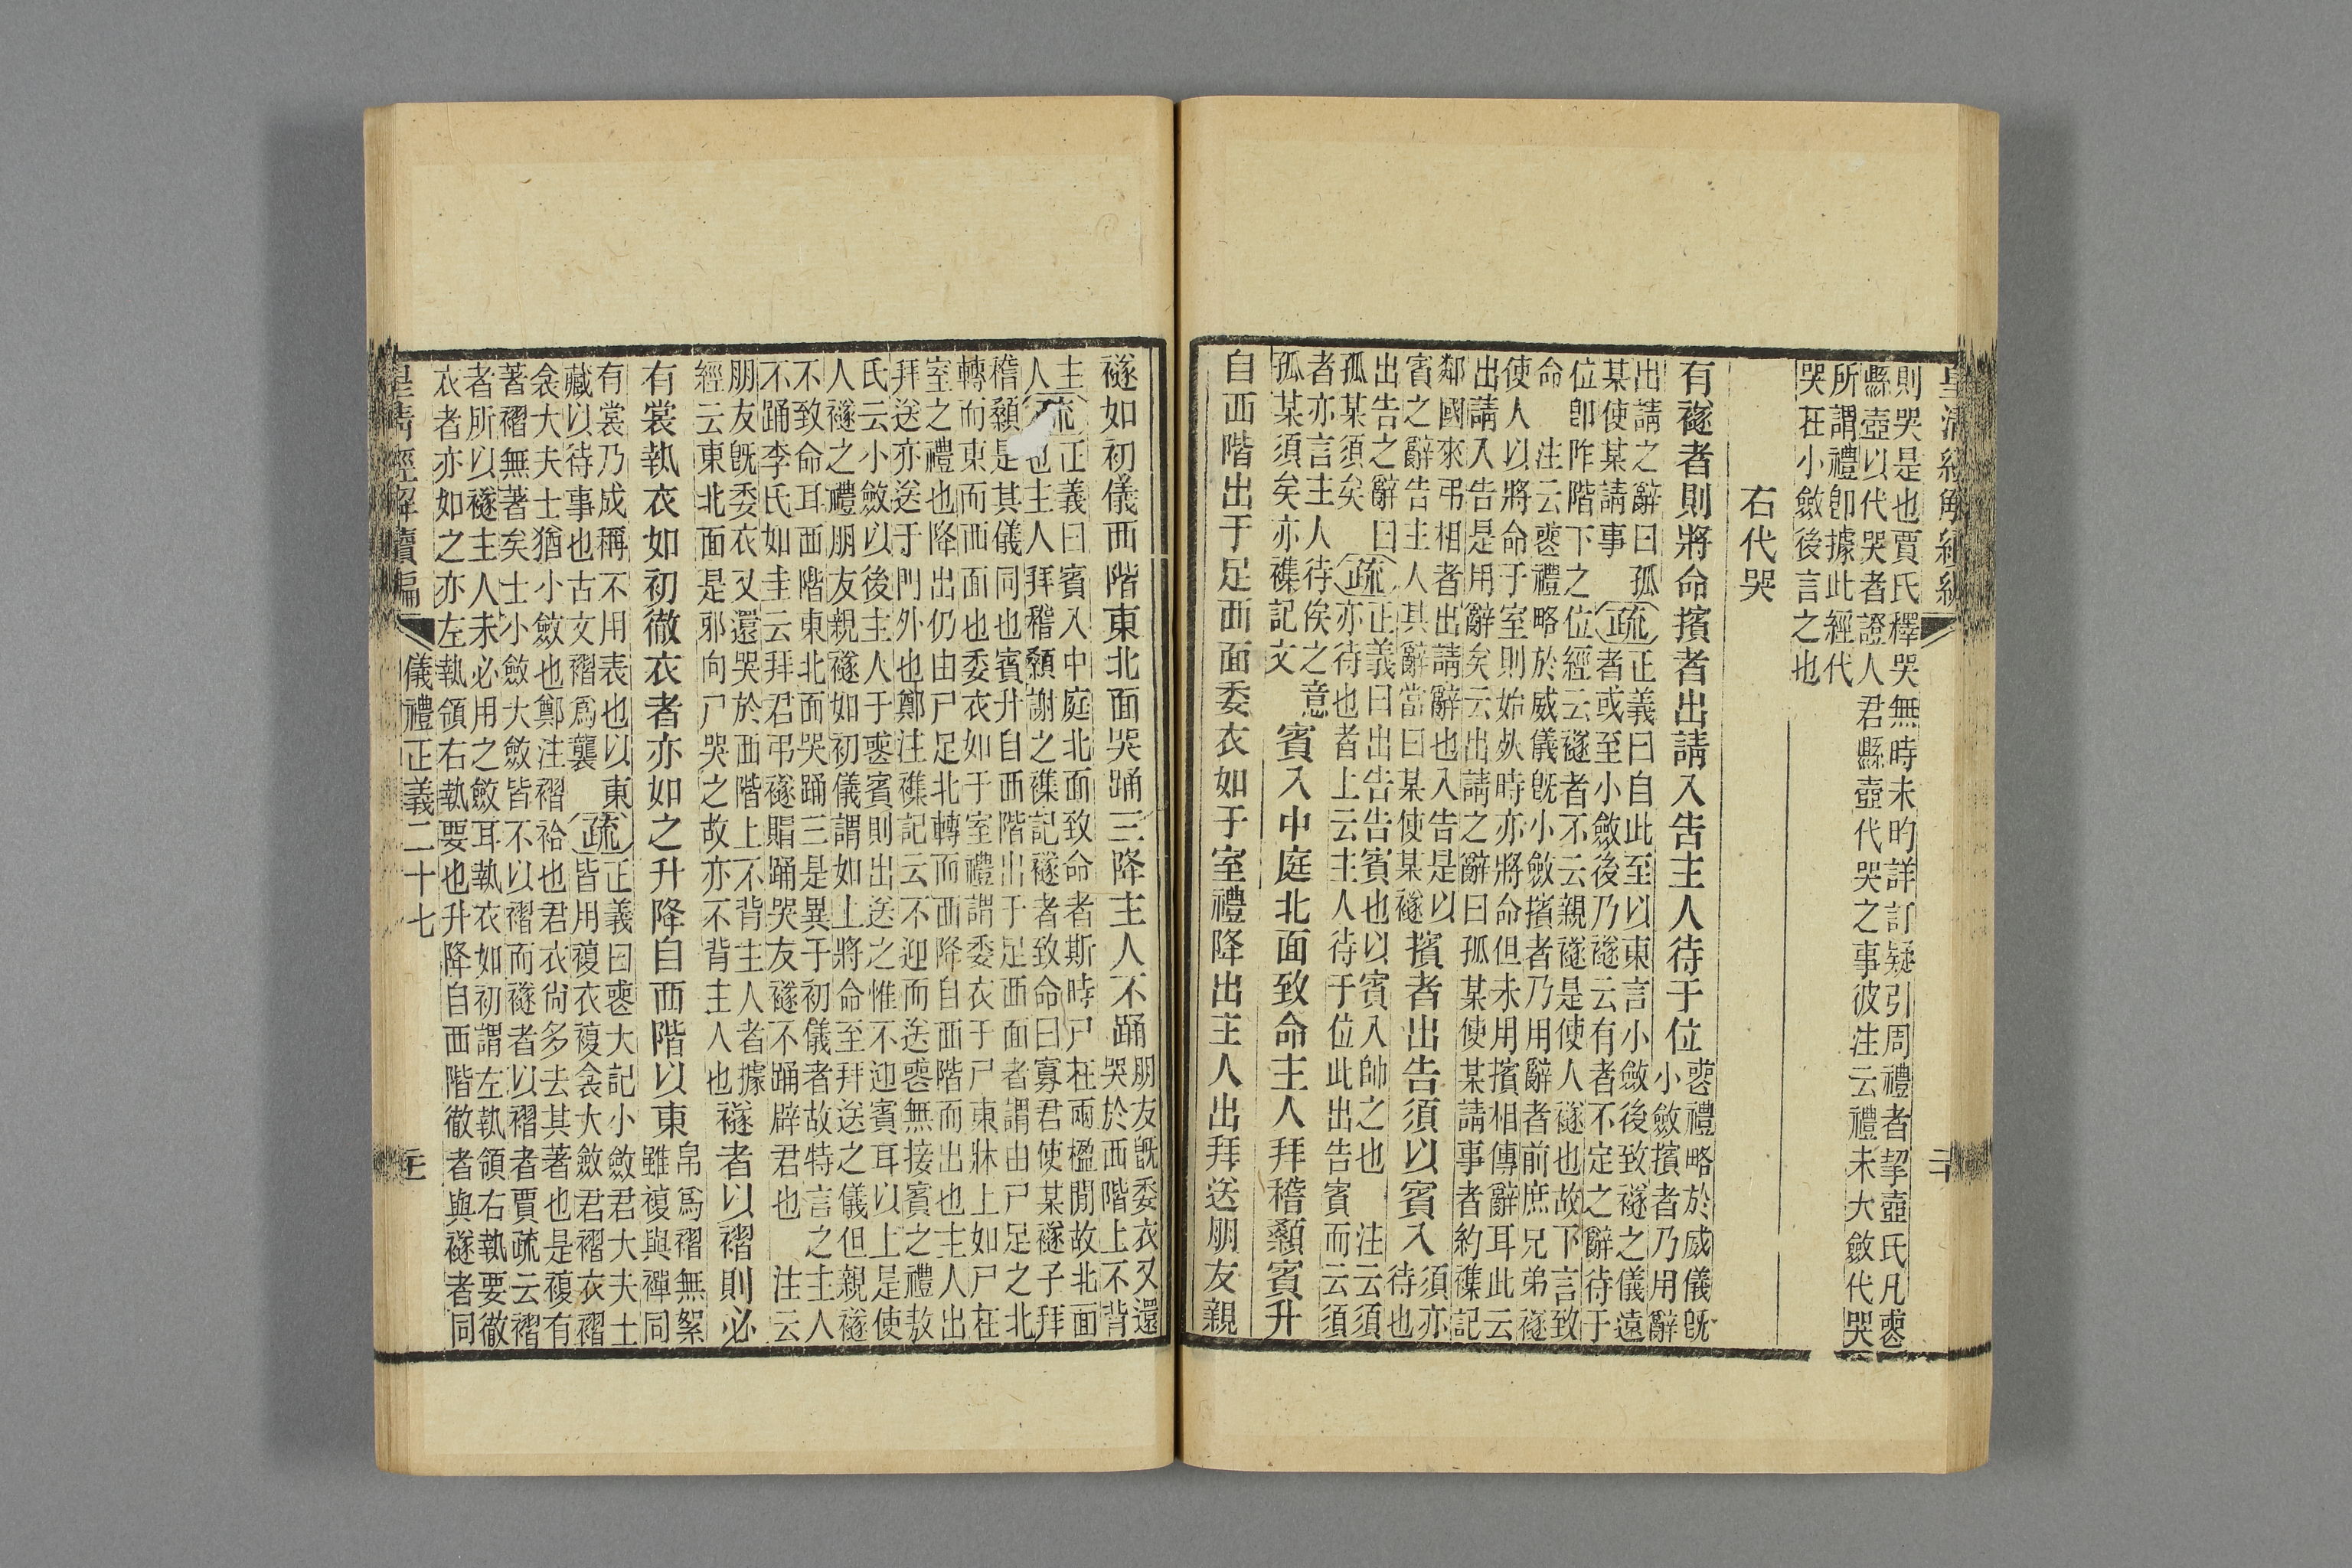 則哭是也賈氏釋哭無時未昀詳訂疑引周禮者挈壺氏凡喪
縣壺以代哭者證人君縣壺代哭之事彼注云禮未大斂代哭
所謂禮卽據此經代
哭在小斂後言之也
右代哭
有襚者則將命擯者出請入告主人待于位
喪禮略於威儀旣
小斂擯者乃用辭
出請之辭曰孤
某使某請事
疏
正義曰自此至以東言小斂後致襚之儀遠
者或至小斂後乃襚云有者不定之辭待于
位卽阼階下之位經云襚者不云親襚是使人襚也故下言致
命 注云喪禮略於威儀旣小斂擯者乃用辭者前庶兄弟襚
使人以將命于室則始死時亦將命但未用擯相傳辭耳此云
出請入告是用辭矣云出請之辭曰孤某使某請事者約襍記
鄰國來弔相者出請辭也入告是以
賓之辭告主人其辭當曰某使某襚
擯者出告須以賓入
須亦
待也
出告之辭曰
孤某須矣
疏
正義曰出告告賓也以賓入帥之也 注云須
亦待也者上云主人待于位此出告賓而云須
者亦言主人待俟之意
孤某須矣亦襍記文
賓入中庭北面致命主人拜稽顙賓升
自西階出于足西面委衣如于室禮降出主人出拜送朋友親
襚如初儀西階東北面哭踊三降主人不踊
朋友旣委衣又還
哭於西階上不背
主
人
疏
正義曰賓入中庭北面致命者斯時尸在兩楹閒故北面
也主人拜稽顙謝之襍記襚者致命曰寡君使某襚子拜
稽顙是其儀同也賓升自西階出于足西面者謂由尸足之北
轉而東而西面也委衣如于室禮謂委衣于尸東牀上如尸在
室之禮也降出仍由尸足北轉而西降自西階而出也主人出
拜送亦送于門外也鄭注襍記云不迎而送喪無接賓之禮敖
氏云小斂以後主人于喪賓則出送之惟不迎賓耳以上是使
人襚之禮朋友親襚如初儀謂如上將命至拜送之儀但親襚
不致命耳西階東北面哭踊三是異于初儀者故特言之主人
不踊李氏如圭云拜君弔襚賵踊哭友襚不踊辟君也 注云
朋友旣委衣又還哭於西階上不背主人者據
經云東北面是郷向尸哭之故亦不背主人也
襚者以褶則必
有裳執衣如初徹衣者亦如之升降自西階以東
帛爲褶無絮
雖複與襌同
有裳乃成稱不用表也以東
藏以待事也古文褶爲襲
疏
正義曰喪大記小斂君大夫士
皆用複衣複衾大斂君褶衣褶
衾大夫士猶小斂也鄭注褶袷也君衣尙多去其著也是複有
著褶無著矣士小斂大斂皆不以褶而襚者以褶者賈疏云褶
者所以襚主人未必用之斂耳執衣如初謂左執領右執要徹
衣者亦如之亦左執領右執要也升降自西階徹者與襚者同
皇淸經解續編
儀禮正義二十七